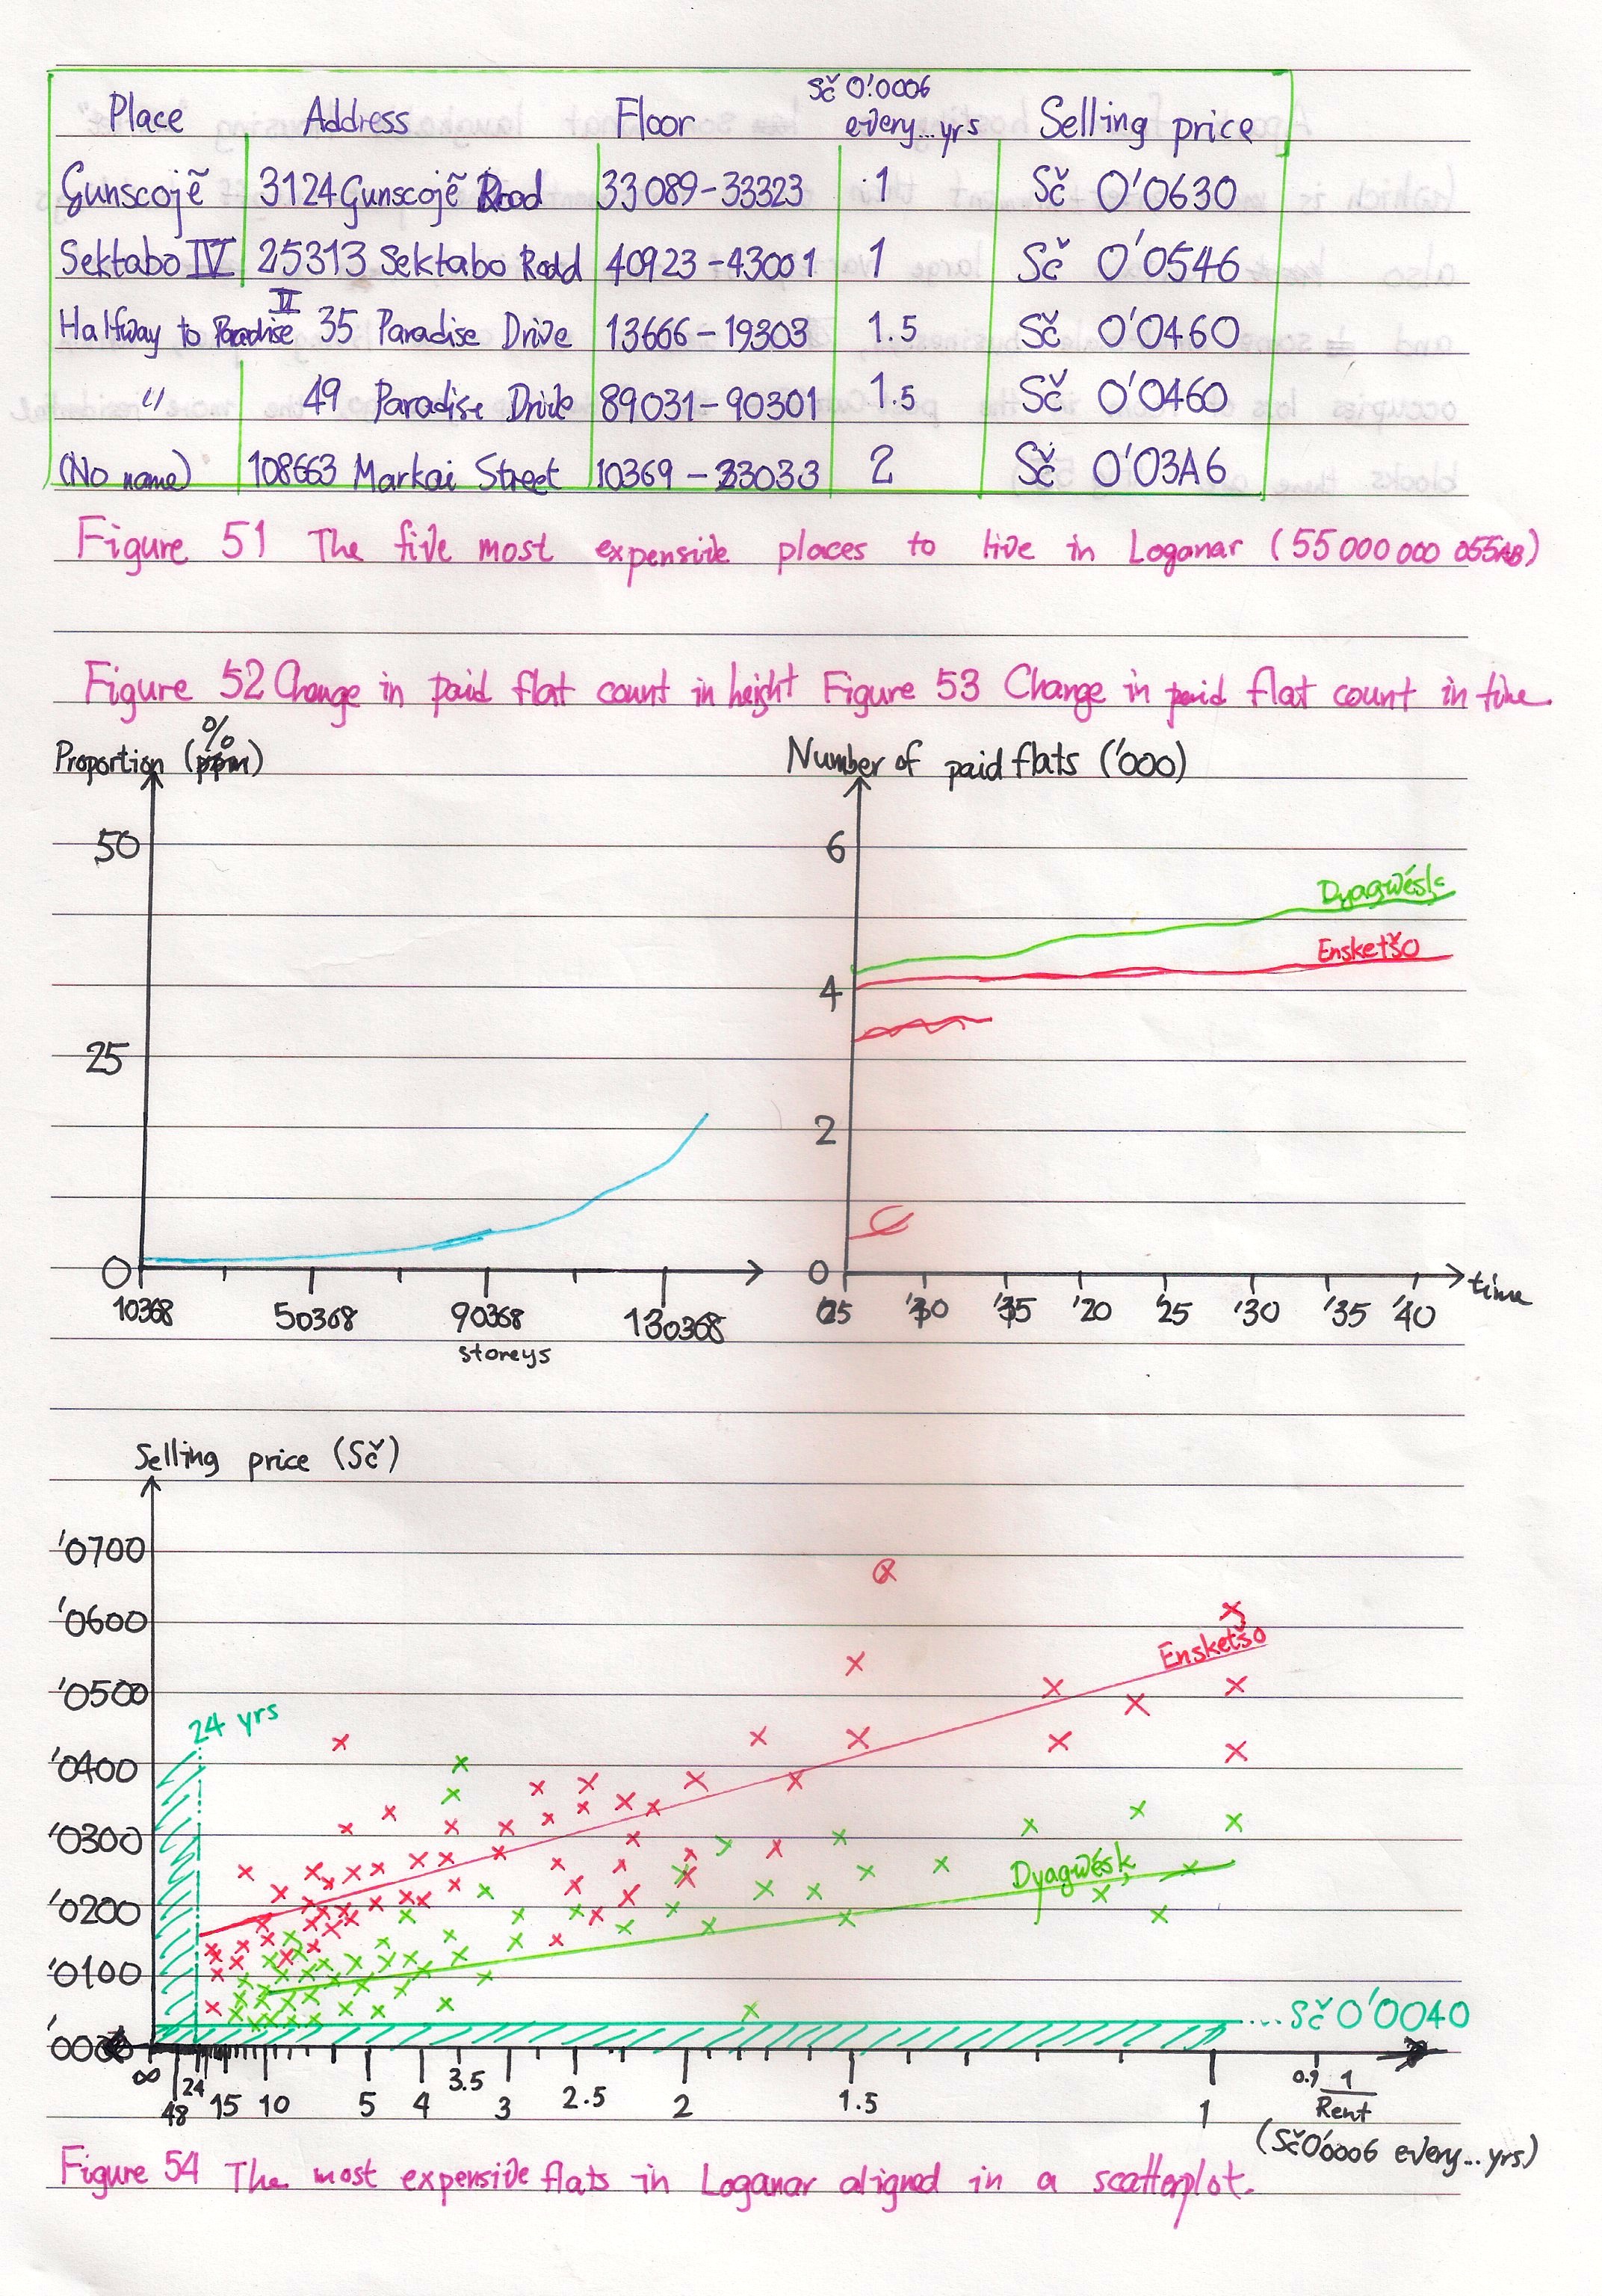 Sč 0'0006
Place Address Floor every...yrs Selling price
Gunscojẽ 3124 Gunscojẽ Road 33089-33323 1 Sč 0'0630
Sektabo IV 25313 Sektabo Road 40923-43001 1 Sč 0'0546
Halfway to Paradise II 35 Paradise Drive 13666-19303 1.5 Sč 0'0460
" 49 Paradise Drive 89031-90301 1.5 Sč 0'0460
(No name) 108663 Markai Street 10369-33033 2 Sč 0'03A6
Figure 51 The five most expensive places to live in Loganar (55 000 000 055AB)
Figure 52 Change in paid flat count in height Figure 53 Change in paid flat count in time
Proportion (%) Number of paid flats ('000)
50 6
Dyagwésk
Ensketšo
4
25
2
0 0
10368 50368 90368 130368 '30 '35 '20 '25 '30 '35 '40 time
storeys
Selling price (Sč)
'0700
'0600
Ensketšo
'0500
24 yrs
'0400
'0300
Dyagwésk
'0200
'0100
Sč 0'0040
'0000
∞ 48 24 15 10 5 4 3.5 3 2.5 2 1.5 1 0.9 1
Rent
(Sč0'0006 every...yrs)
Figure 54 The most expensive flats in Loganar aligned in a scatterplot.